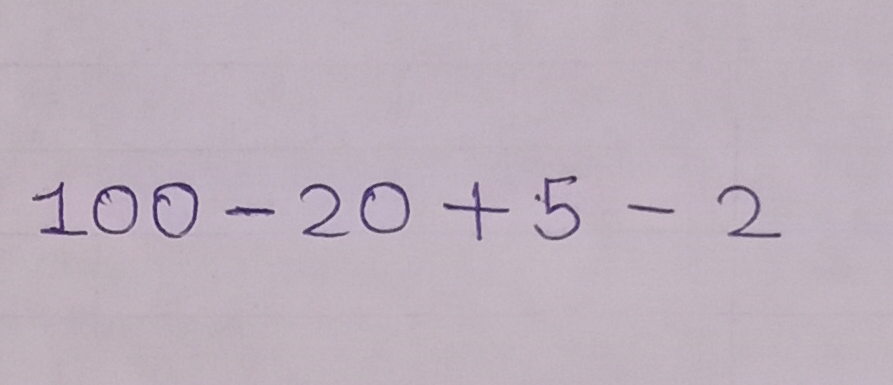 100 - 20 + 5 - 2